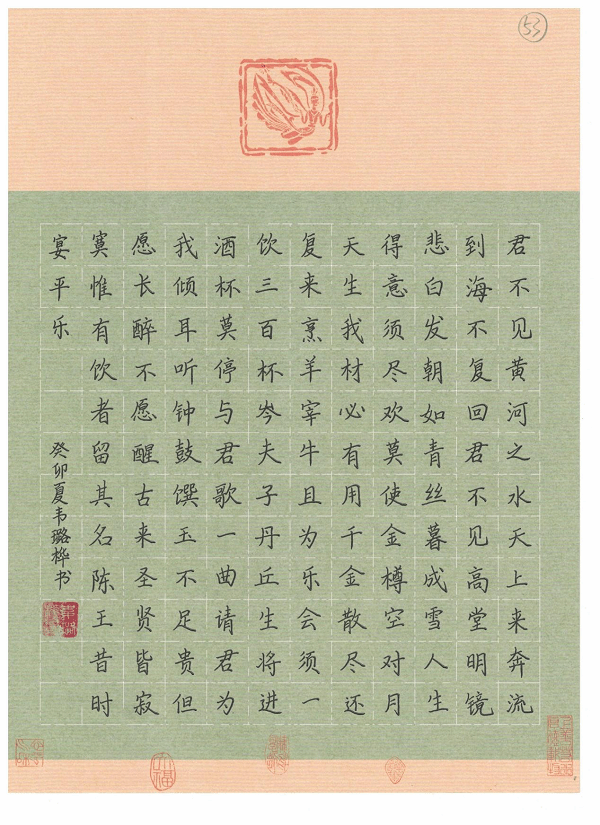 53
君不见黄河之水天上来奔流
到海不复回君不见高堂明镜
悲白发朝如青丝暮成雪人生
得意须尽欢莫使金樽空对月
天生我材必有用千金散尽还
复来烹羊宰牛且为乐会须一
饮三百杯岑夫子丹丘生将进
酒杯莫停与君歌一曲请君为
我倾耳听钟鼓馔玉不足贵但
愿长醉不愿醒古来圣贤皆寂
寞惟有饮者留其名陈王昔时
宴平乐
癸卯夏韦璐桦书